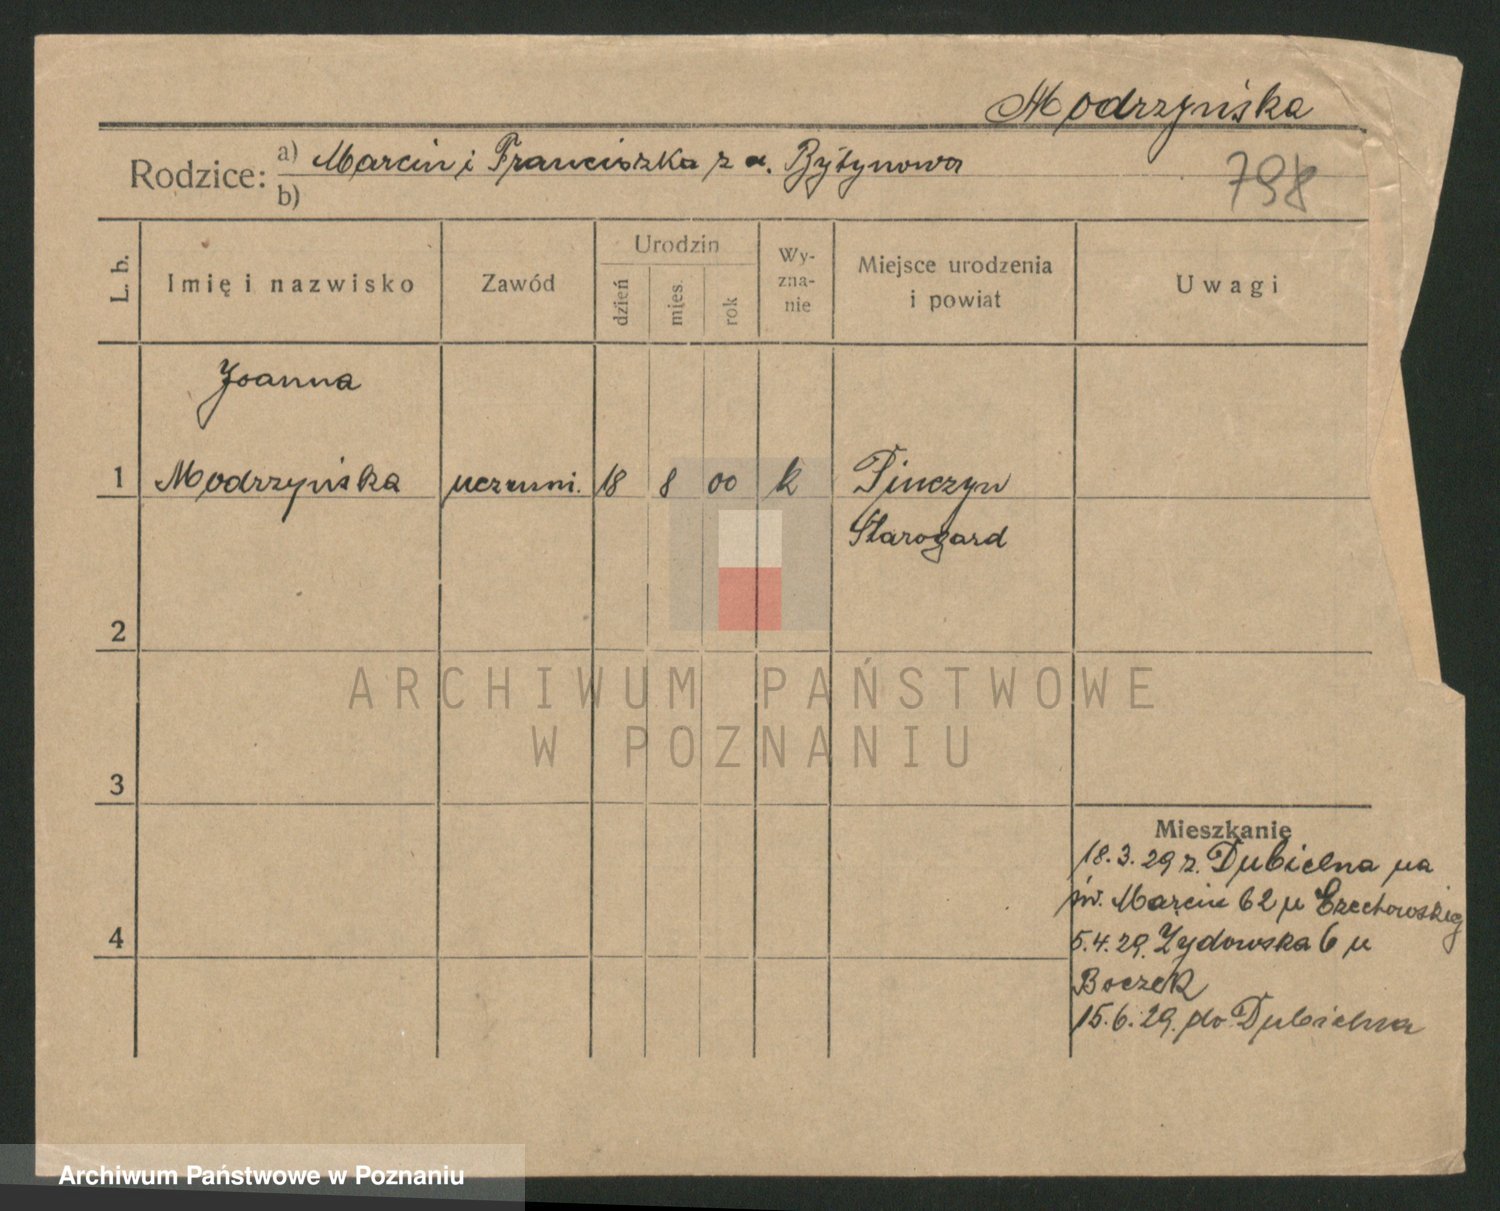 Modrzyńska
Rodzice: a) Marcin i Franciszka z d.
b)
798
L. b.
Imię i nazwisko
Zawód
Urodzin
dzień
mies.
rok
Wy-
zna-
nie
Miejsce urodzenia
i powiat
Uwagi
Joanna
1 Modrzyńska uczenni. 18 8 00 k Pinczyn
Starogard
2
3
4
Mieszkanie
18.3.29 z. Dubielna na
św. Marcin 62 u
5.4.29. Żydowska 6 u
Boczek
15.6.29. do Dubielna
ARCHIWUM PAŃSTWOWE
W POZNANIU
Archiwum Państwowe w Poznaniu